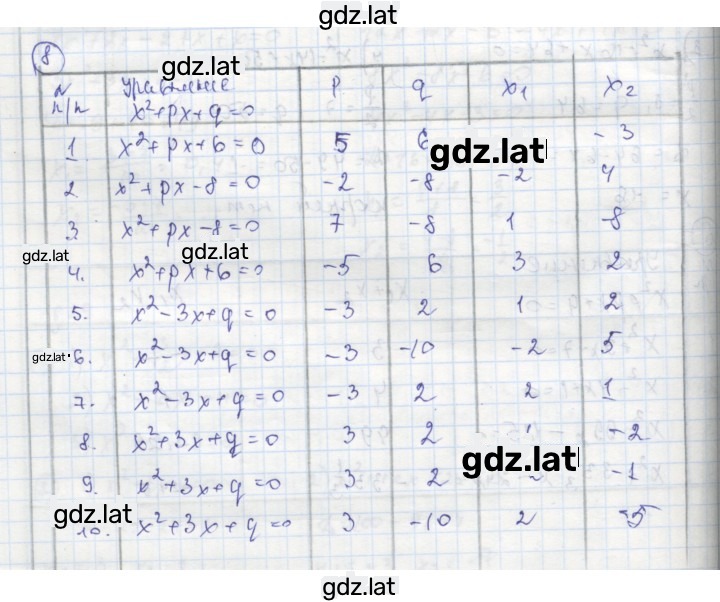 gdz.lat
8
gdz.lat
N п/п Уравнение x²+px+q=0 p q x₁ x₂
1 x²+px+6=0 5 6 -3
gdz.lat
2 x²+px-8=0 -2 -8 -2 4
3. x²+px-8=0 7 -8 1 -8
gdz.lat gdz.lat
4. x²+px+6=0 -5 6 3 2
5. x²-3x+q=0 -3 2 1 2
gdz.lat
6. x²-3x+q=0 -3 -10 -2 5
7. x²-3x+q=0 -3 2 2 1
8. x²+3x+q=0 3 2 -2
gdz.lat
9. x²+3x+q=0 3 2 -1
gdz.lat
10. x²+3x+q=0 3 -10 2 -5
gdz.lat